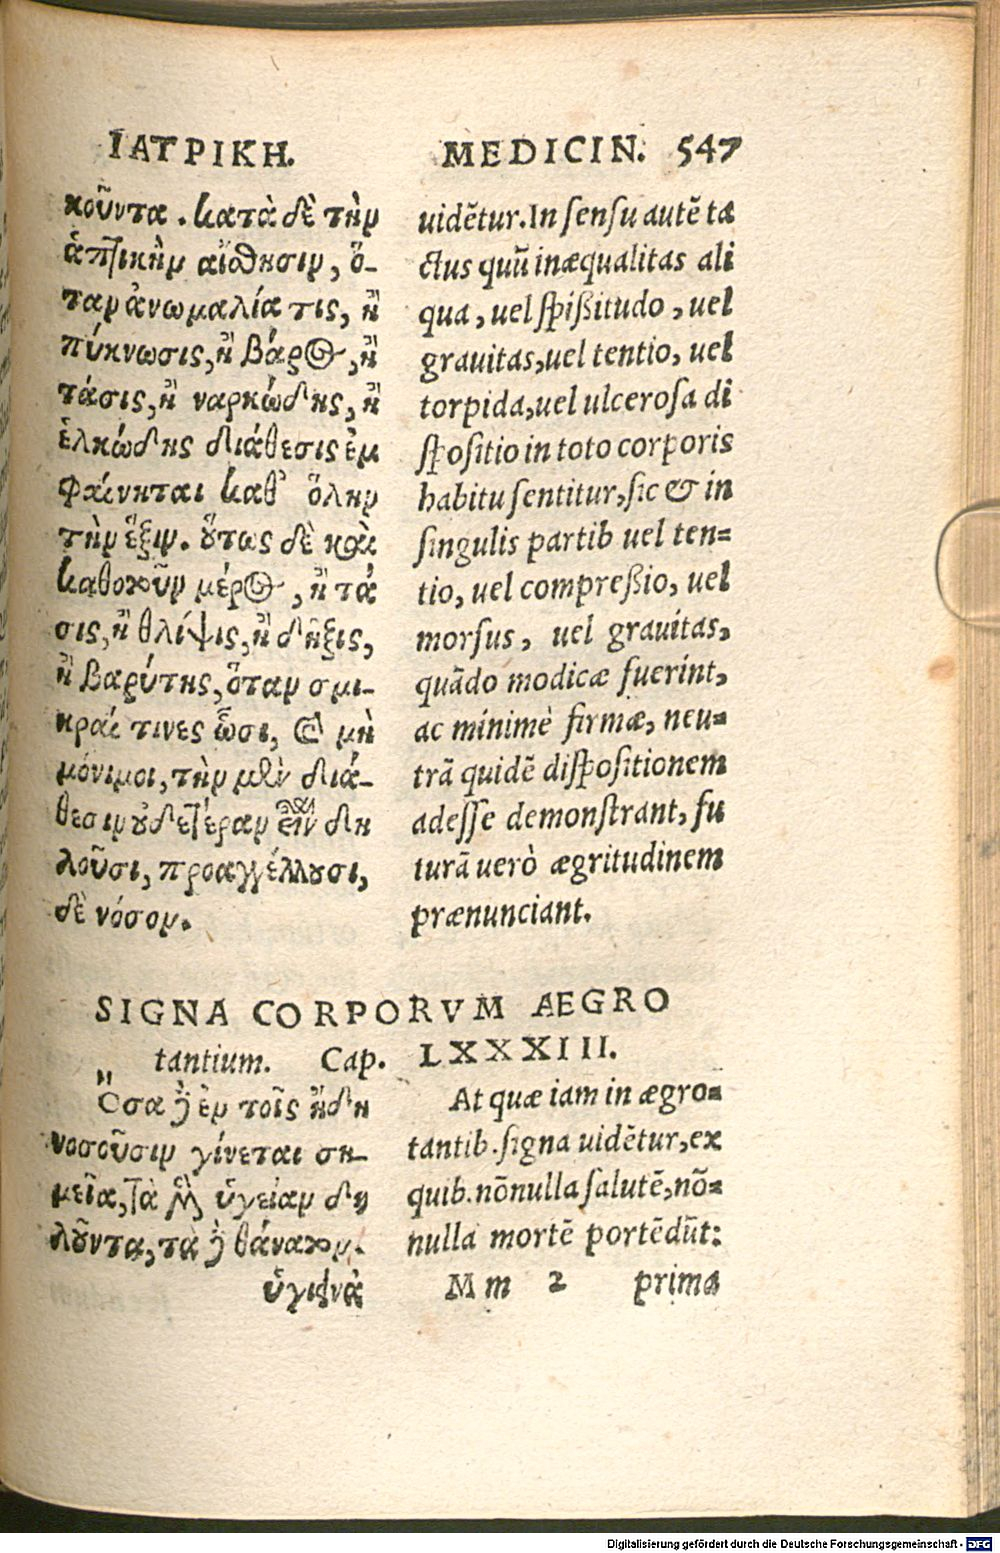 ΙΑΤΡΙΚΗ.
κοῦντα. κατὰ δὲ τὴν
ἁπτικὴν αἴσθησιν, ὅ-
ταν ἀνωμαλία τις, ἢ
πύκνωσις, ἢ βάρος, ἢ
τάσις, ἢ ναρκώδης, ἢ
ἑλκώδης διάθεσις ἐμ
φαίνηται καθ' ὅλην
τὴν ἕξιν. οὕτως δὲ καὶ
καθ' ὁτιοῦν μέρος, ἢ τά
σις, ἢ θλίψις, ἢ δῆξις,
ἢ βαρύτης, ὅταν σμι-
κραί τινες ὦσι, καὶ μὴ
μόνιμοι, τὴν μὲν διά-
θεσιν οὐδετέραν εἶναι δη
λοῦσι, προαγγέλλουσι,
δὲ νόσον.
MEDICIN. 547
uidẽtur. In sensu autẽ ta
ctus quũ inæqualitas ali
qua, uel spißitudo, uel
grauitas, uel tentio, uel
torpida, uel ulcerosa di
spositio in toto corporis
habitu sentitur, sic & in
singulis partib uel ten=
tio, uel compreßio, uel
morsus, uel grauitas,
quãdo modicæ fuerint,
ac minimè firmæ, neu=
trã quidẽ dispositionem
adesse demonstrant, fu
turã uerò ægritudinem
prænunciant.
SIGNA CORPORVM AEGRO
tantium. Cap. LXXXIII.
Ὅσα δὲ ἐν τοῖς ἤδη
νοσοῦσιν γίνεται ση-
μεῖα, τὰ μὲν ὑγείαν δη
λοῦντα, τὰ δὲ θάνατον.
ὑγιεινὰ
At quæ iam in ægro=
tantib. signa uidẽtur, ex
quib. nõnulla salutẽ, nõ=
nulla mortẽ portẽdũt:
M m 2 prima
Digitalisierung gefördert durch die Deutsche Forschungsgemeinschaft - DFG